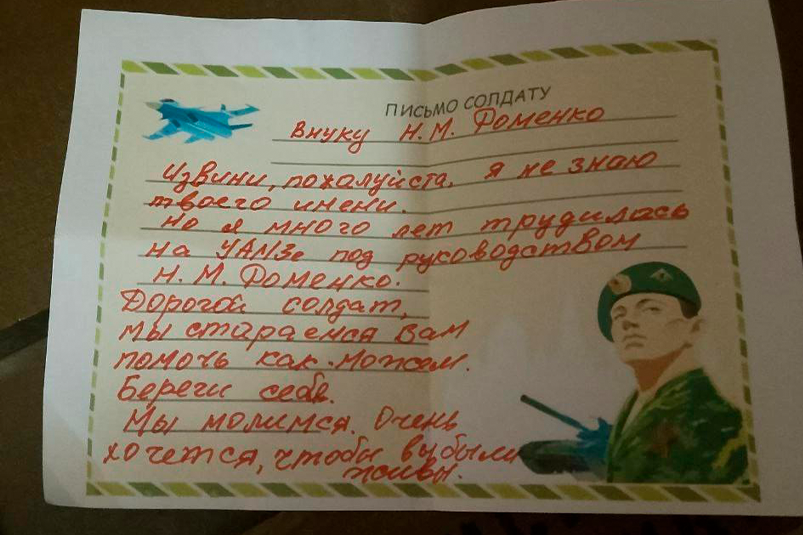 ПИСЬМО СОЛДАТУ
Внуку Н.М. Фоменко
Извини, пожалуйста. Я не знаю
твоего имени.
Но я много лет трудилась
на УАМЗе под руководством
Н.М. Фоменко.
Дорогой солдат,
мы стараемся Вам
помочь как можем.
Береги себя.
Мы молимся. Очень
хочется, чтобы вы были
живы.